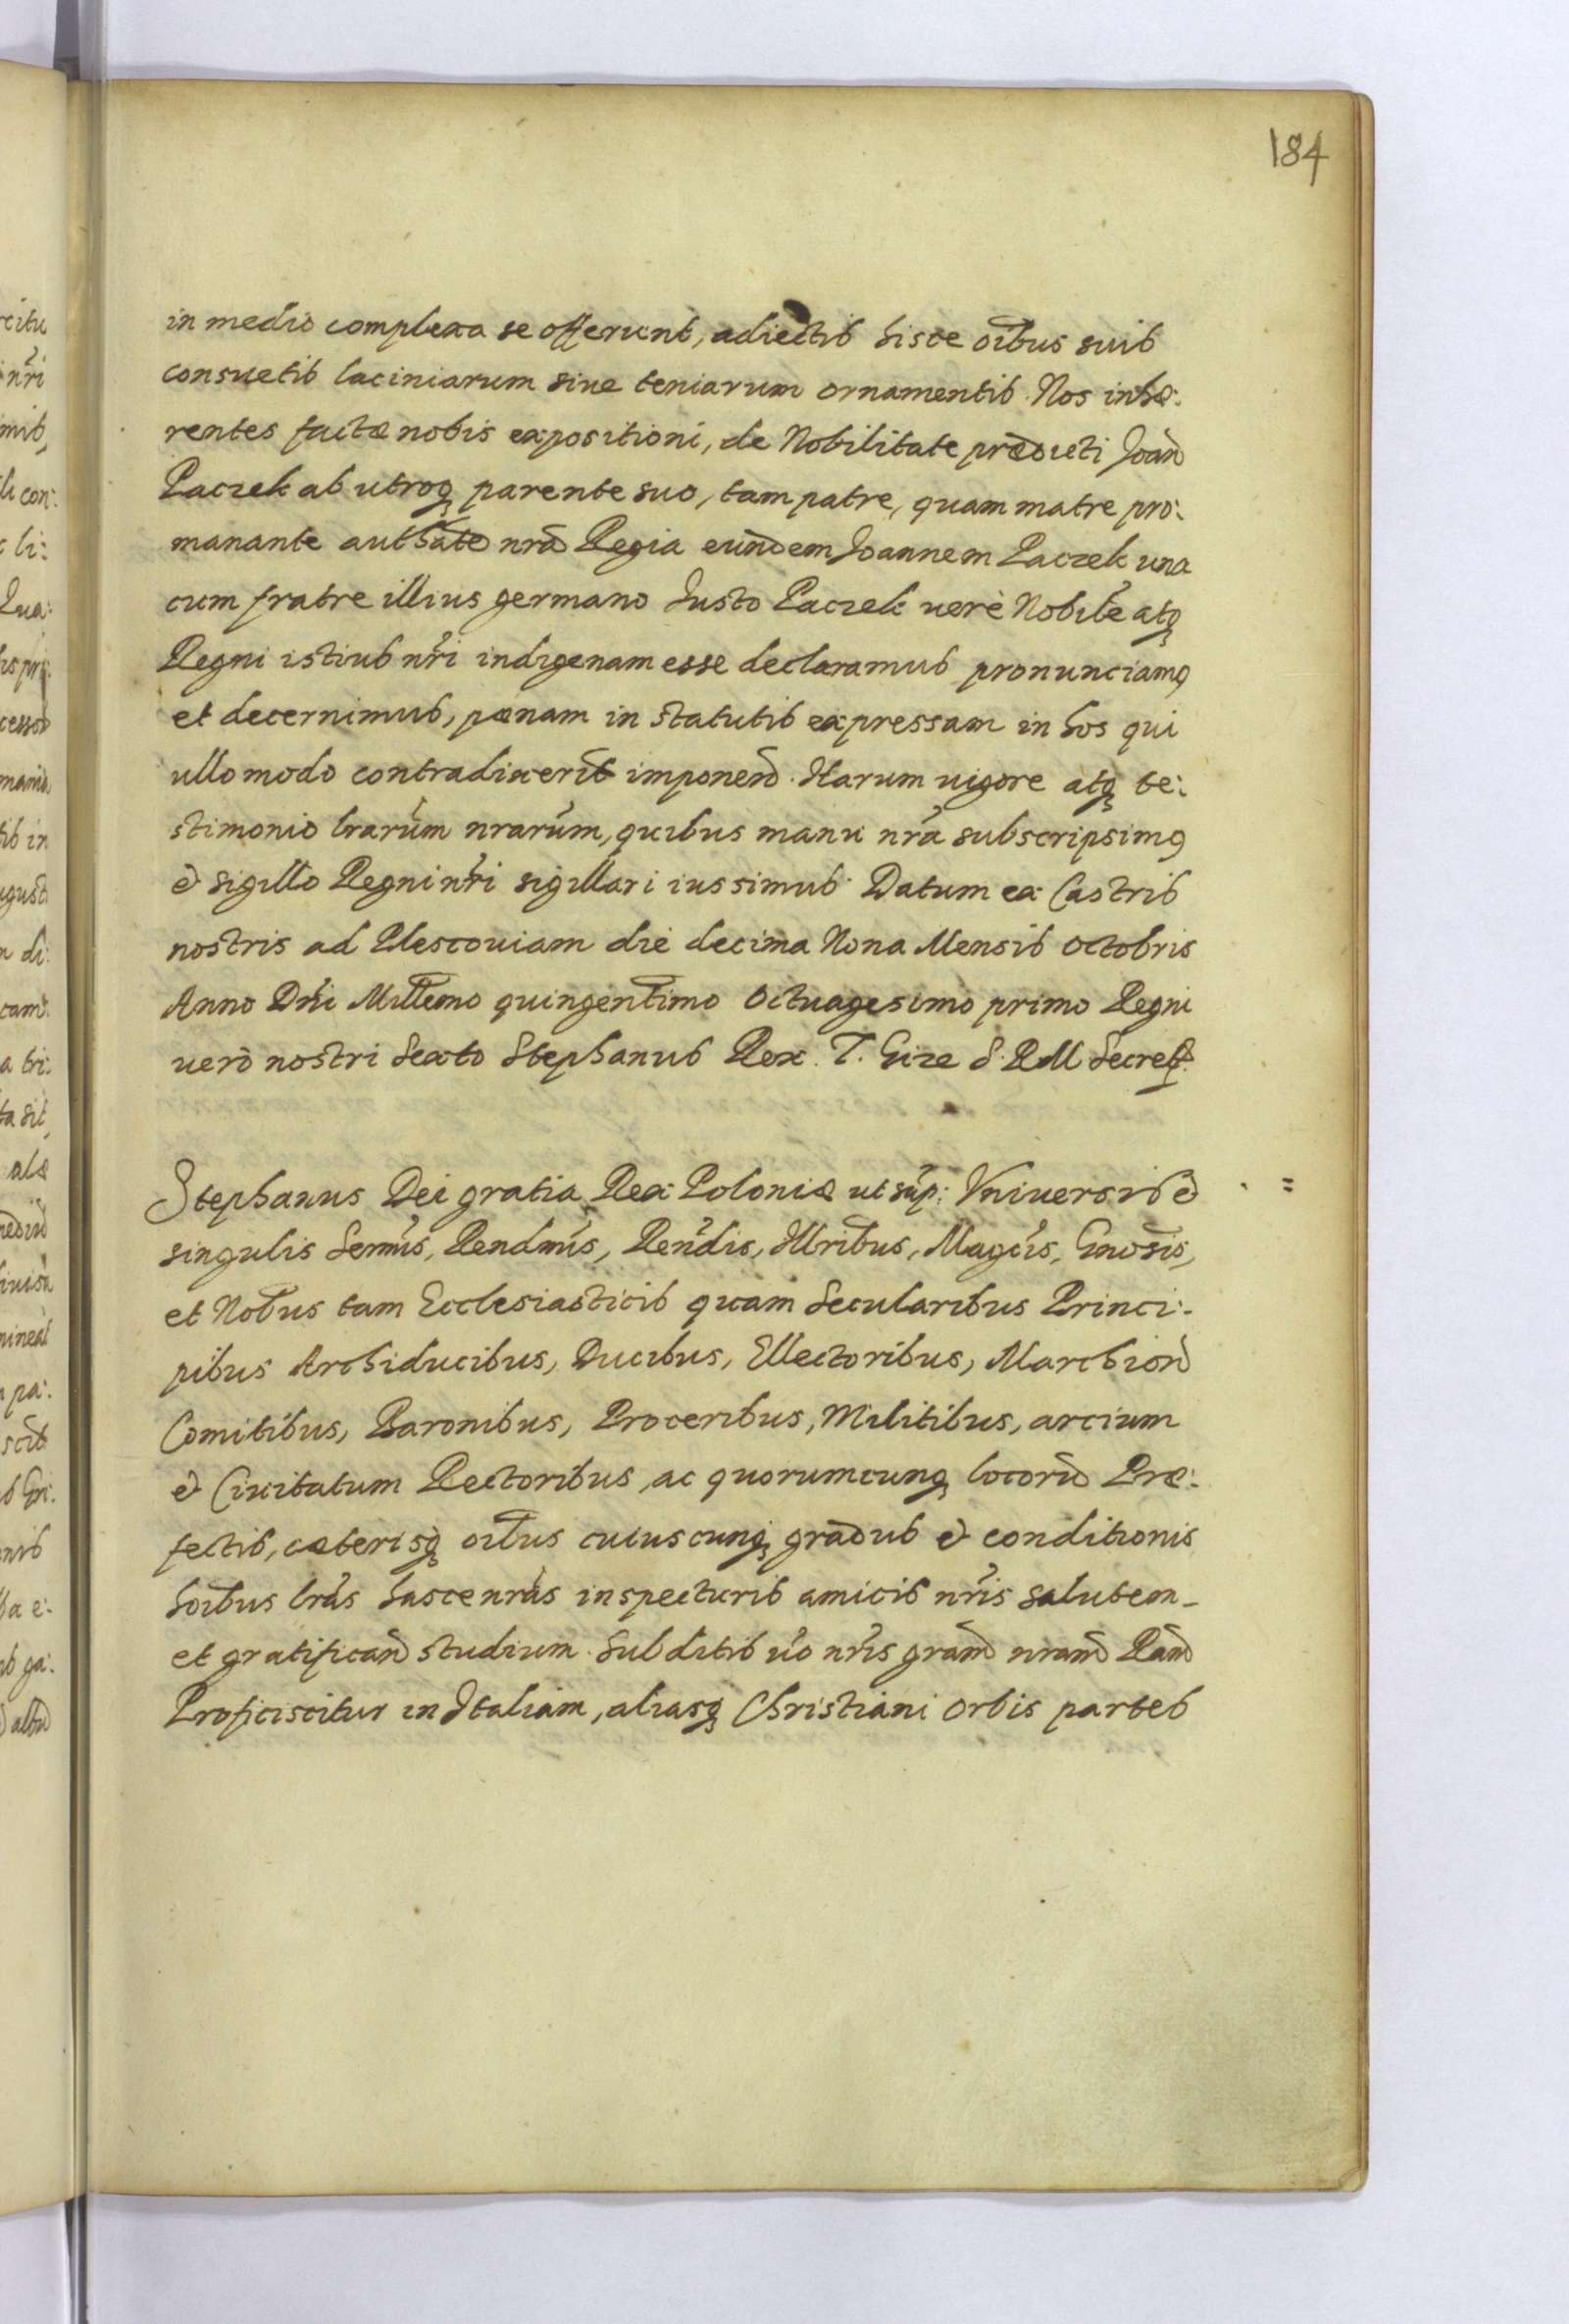 184
in medio complexa se offerunt, adiectis hisce oibus suis
consuetis laciniarum siue teniarum ornamentis. Nos inhæ:
rentes factæ nobis expositioni, de Nobilitate prædicti Joañ
Paczek ab utroq parente suo, tam patre, quam matre pro:
manante authate nrã Regia eundem Joannem Paczek una
cum fratre illius germano Justo Paczek uerè Nobilẽ atq
Regni istius nri indigenam esse declaramus pronunciamq
et decernimus, pœnam in statutis expressam in hos qui
ullo modo contradixerit imponeñ. Harum uigore atq te:
stimonio lrarum nrarum, quibus manu nrã subscripsimq
et sigillo Regni nri sigillari iussimus. Datum ex Castris
nostris ad Plescouiam die decima Nona Mensis Octobris
Anno Dni Millemo quingentimo Octuagesimo primo Regni
uerò nostri Sexto Stephanus Rex. T. Gize S. R M Secret.
Stephanus Dei gratia Rex Poloniæ ut sup: Vniuersis et
singulis Sermis, Rendmis, Rendis, Illribus, Magcis, Gnosis,
et Nobus tam Ecclesiasticis quam Secularibus Princi:
pibus Archiducibus, Ducibus, Ellectoribus, Marchioñ
Comitibus, Baronibus, Proceribus, Militibus, arcium
et Ciuitatum Rectoribus, ac quorumcunq locorũ Præ:
fectis, cæterisq oibus cuiuscunq gradus et conditionis
hoibus lras hasce nras inspecturis amicis nris salutem
et gratificañ studium. Subditis uo nris gram nram Ram
Proficiscitur in Italiam, aliasq Christiani orbis partes